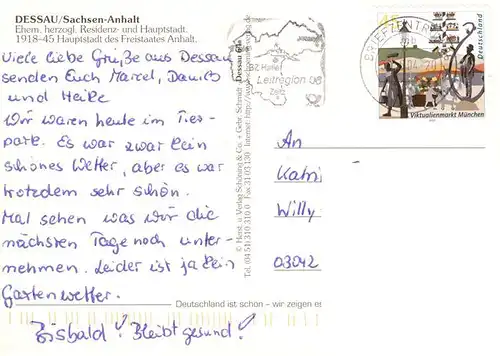 DESSAU/Sachsen-Anhalt
Ehem. herzogl. Residenz- und Hauptstadt.
1918-45 Hauptstadt des Freistaates Anhalt.
Viele liebe Grüße aus Dessau
senden Euch Marcel,
und Heike
Wir waren heute im Tier-
park. Es war zwar kein
schönes Wetter, aber es war
trotzdem sehr schön.
Mal sehen was wir die
nächsten Tage noch unter-
nehmen. Leider ist ja kein
Gartenwetter.
Bisbald! Bleibt gesund!
Dessau
© Herst. u. Verlag Schöning & Co. + Gebr. Schmidt
Tel. (04 51) 310 310 Fax 31 03 130 Internet: http://www
BZ Halle
Leitregion 06
Zeitz
BRIEFZENTRUM
Deutschland
Viktualienmarkt München
An
Katri
Willy
03042
Deutschland ist schön - wir zeigen es